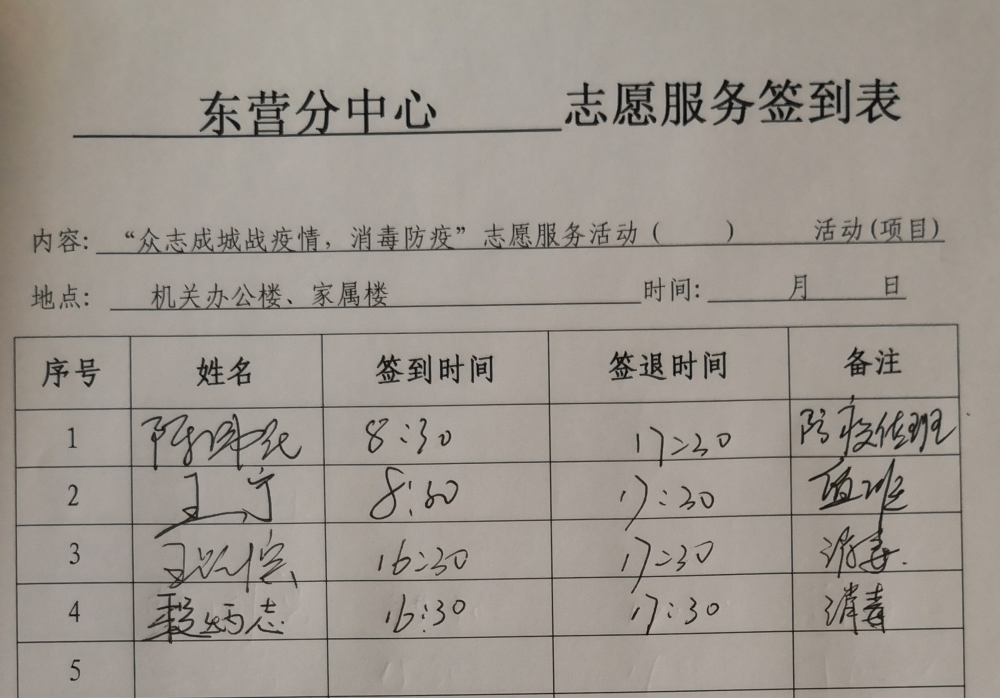 东营分中心 志愿服务签到表
内容: “众志成城战疫情，消毒防疫”志愿服务活动（ ） 活动(项目)
地点: 机关办公楼、家属楼 时间: 月 日
序号 姓名 签到时间 签退时间 备注
1 8:30 17:30 防疫值班
2 王宁 8:30 17:30 值班
3 王 16:30 17:30 消毒
4 志 16:30 17:30 消毒
5